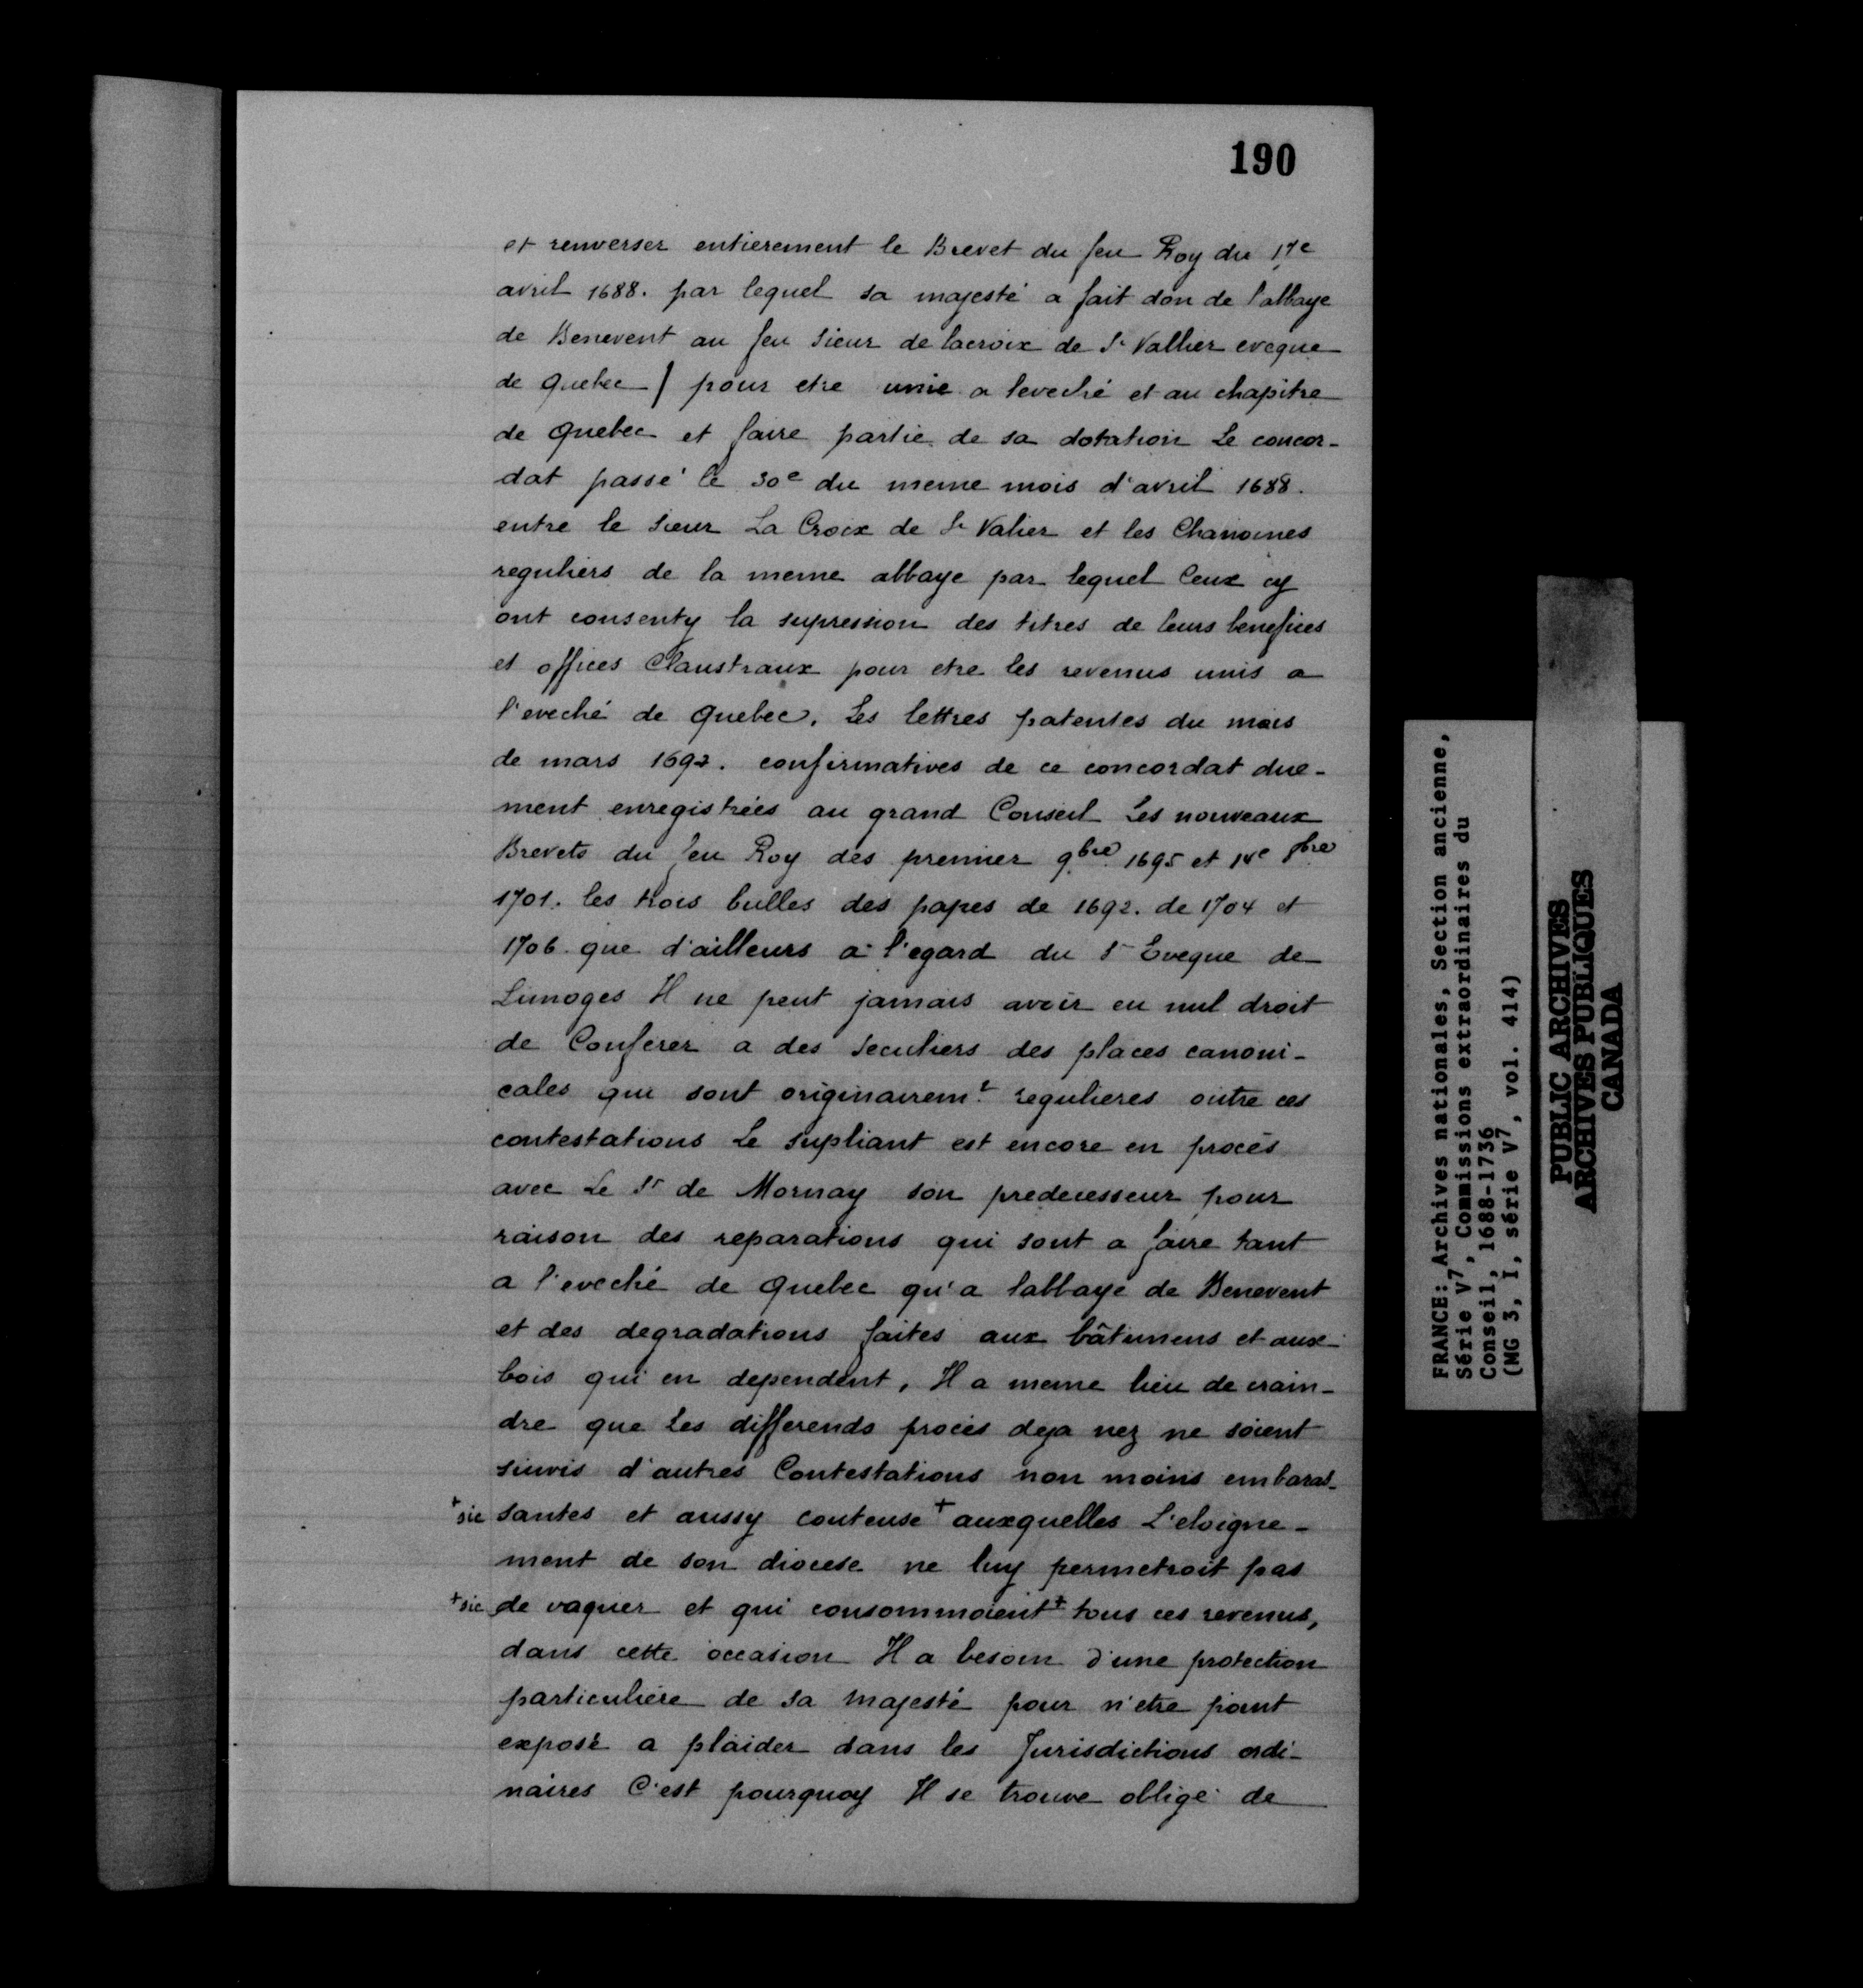 190
et renverser entierement le Brevet du feu Roy du 17e
avril 1688. par lequel sa majesté a fait don de l'abbaye
de Benevent au feu Sieur de lacroix de St Vallier eveque
de quebec / pour etre unie a leveché et au chapitre
de Quebec et faire partie de sa dotation Le concor-
dat passé le 30e du meme mois d'avril 1688.
entre le Sieur La Croix de St Valier et les Chanoines
reguliers de la meme abbaye par lequel Ceux cy
ont consenty la supression des titres de leurs benefices
et offices Claustraux pour etre les revenus unis a
l'eveché de Quebec. Les lettres patentes du mois
de mars 1692. confirmatives de ce concordat due-
ment enregistrées au grand Conseil Les nouveaux
Brevets du feu Roy des premier 9bre 1695 et 14e
1701. les trois bulles des papes de 1692. de 1704 et
1706 que d'ailleurs a l'egard du Sr Eveque de
Limoges Il ne peut jamais avoir eu nul droit
de Conferer a des seculiers des places canoni-
cales qui sont originairemt regulieres outre ces
contestations Le supliant est encore en procès
avec Le Sr de Mornay son predecesseur pour
raison des reparations qui sont a faire tant
a l'eveché de Quebec qu'a labbaye de Benevent
et des degradations faites aux bâtimens et aux
bois qui en dependent, Il a meme lieu de crain-
dre que Les differends procès deja nez ne soient
suivis d'autres Contestations non moins embaras-
+ sic santes et aussy couteuse + auxquelles L'eloigne-
ment de son diocese ne luy permetroit pas
+ sic de vaquer et qui consommoient + tous ces revenus,
dans cette occasion Il a besoin d'une protection
particuliére de sa majesté pour n'etre point
exposé a plaider dans les Jurisdictions ordi-
naires C'est pourquoy Il se trouve obligé de
FRANCE: Archives nationales, Section ancienne,
Série V7, Commissions extraordinaires du
Conseil, 1688-1736
(MG 3, I, série V7, vol. 414)
PUBLIC ARCHIVES
ARCHIVES PUBLIQUES
CANADA